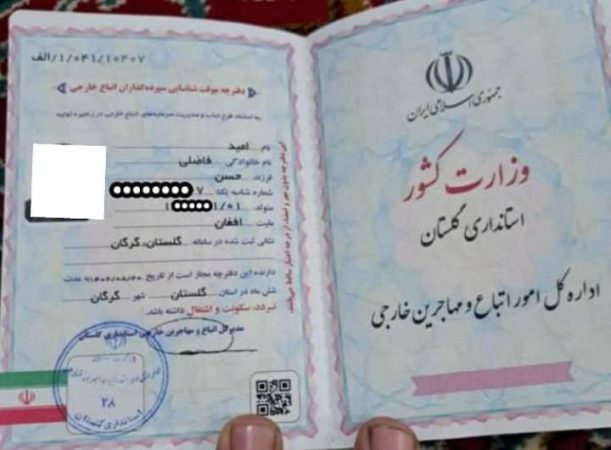 ۱/۰۴۱/۱۰۴۰۷/الف
دفترچه موقت شناسایی سپرده‌گذاران اتباع خارجی
به استناد طرح جذب و مدیریت سرمایه‌های اتباع خارجی در زنجیره تولید
نام امید
نام خانوادگی فاضلی
فرزند حسن
شماره شناسه یکتا ۷
متولد ۱/۰۱ ۱
ملیت افغان
نشانی ثبت شده در سامانه گلستان، گرگان
دارنده این دفترچه مجاز است از تاریخ به مدت
شش ماه در استان گلستان شهر گرگان
تردد، سکونت و اشتغال داشته باشد.
مدیرکل اتباع و مهاجرین خارجی استانداری گلستان
۲۸
استانداری گلستان
جمهوری اسلامی ایران
وزارت کشور
استانداری گلستان
اداره کل امور اتباع و مهاجرین خارجی